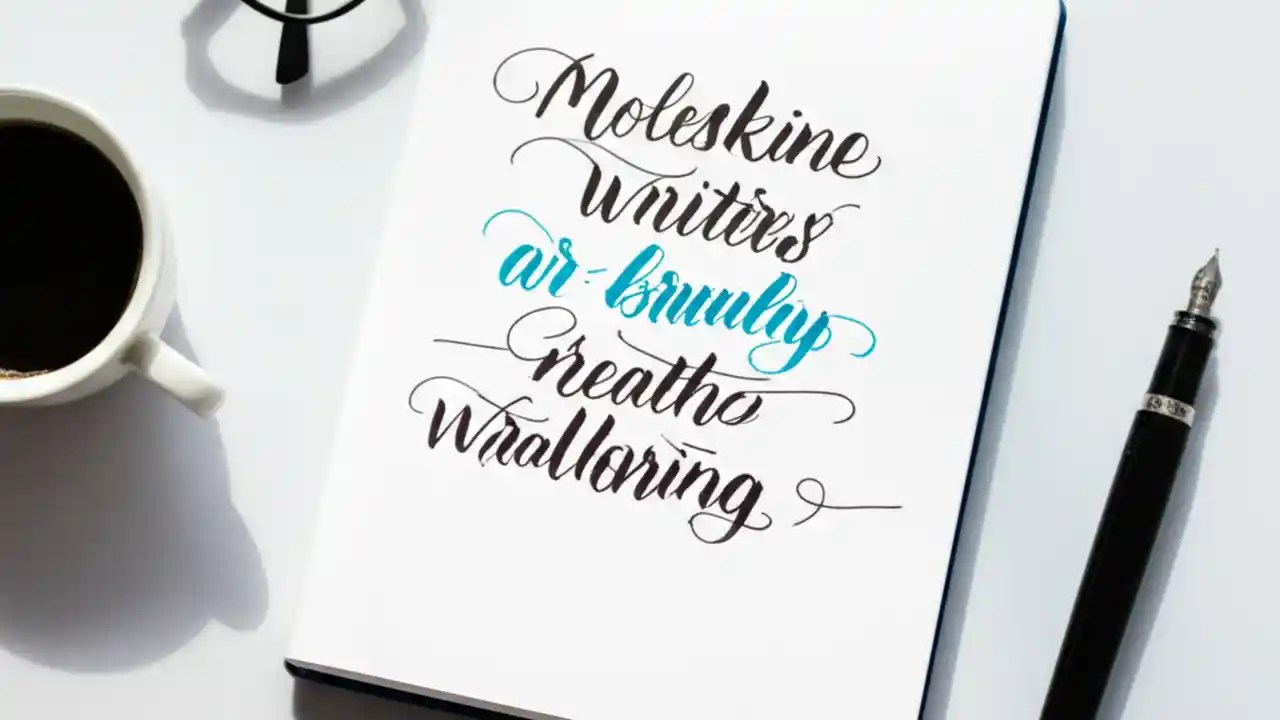 Moleskine
Writers
ar-brunlny
Neatho
Wralloring